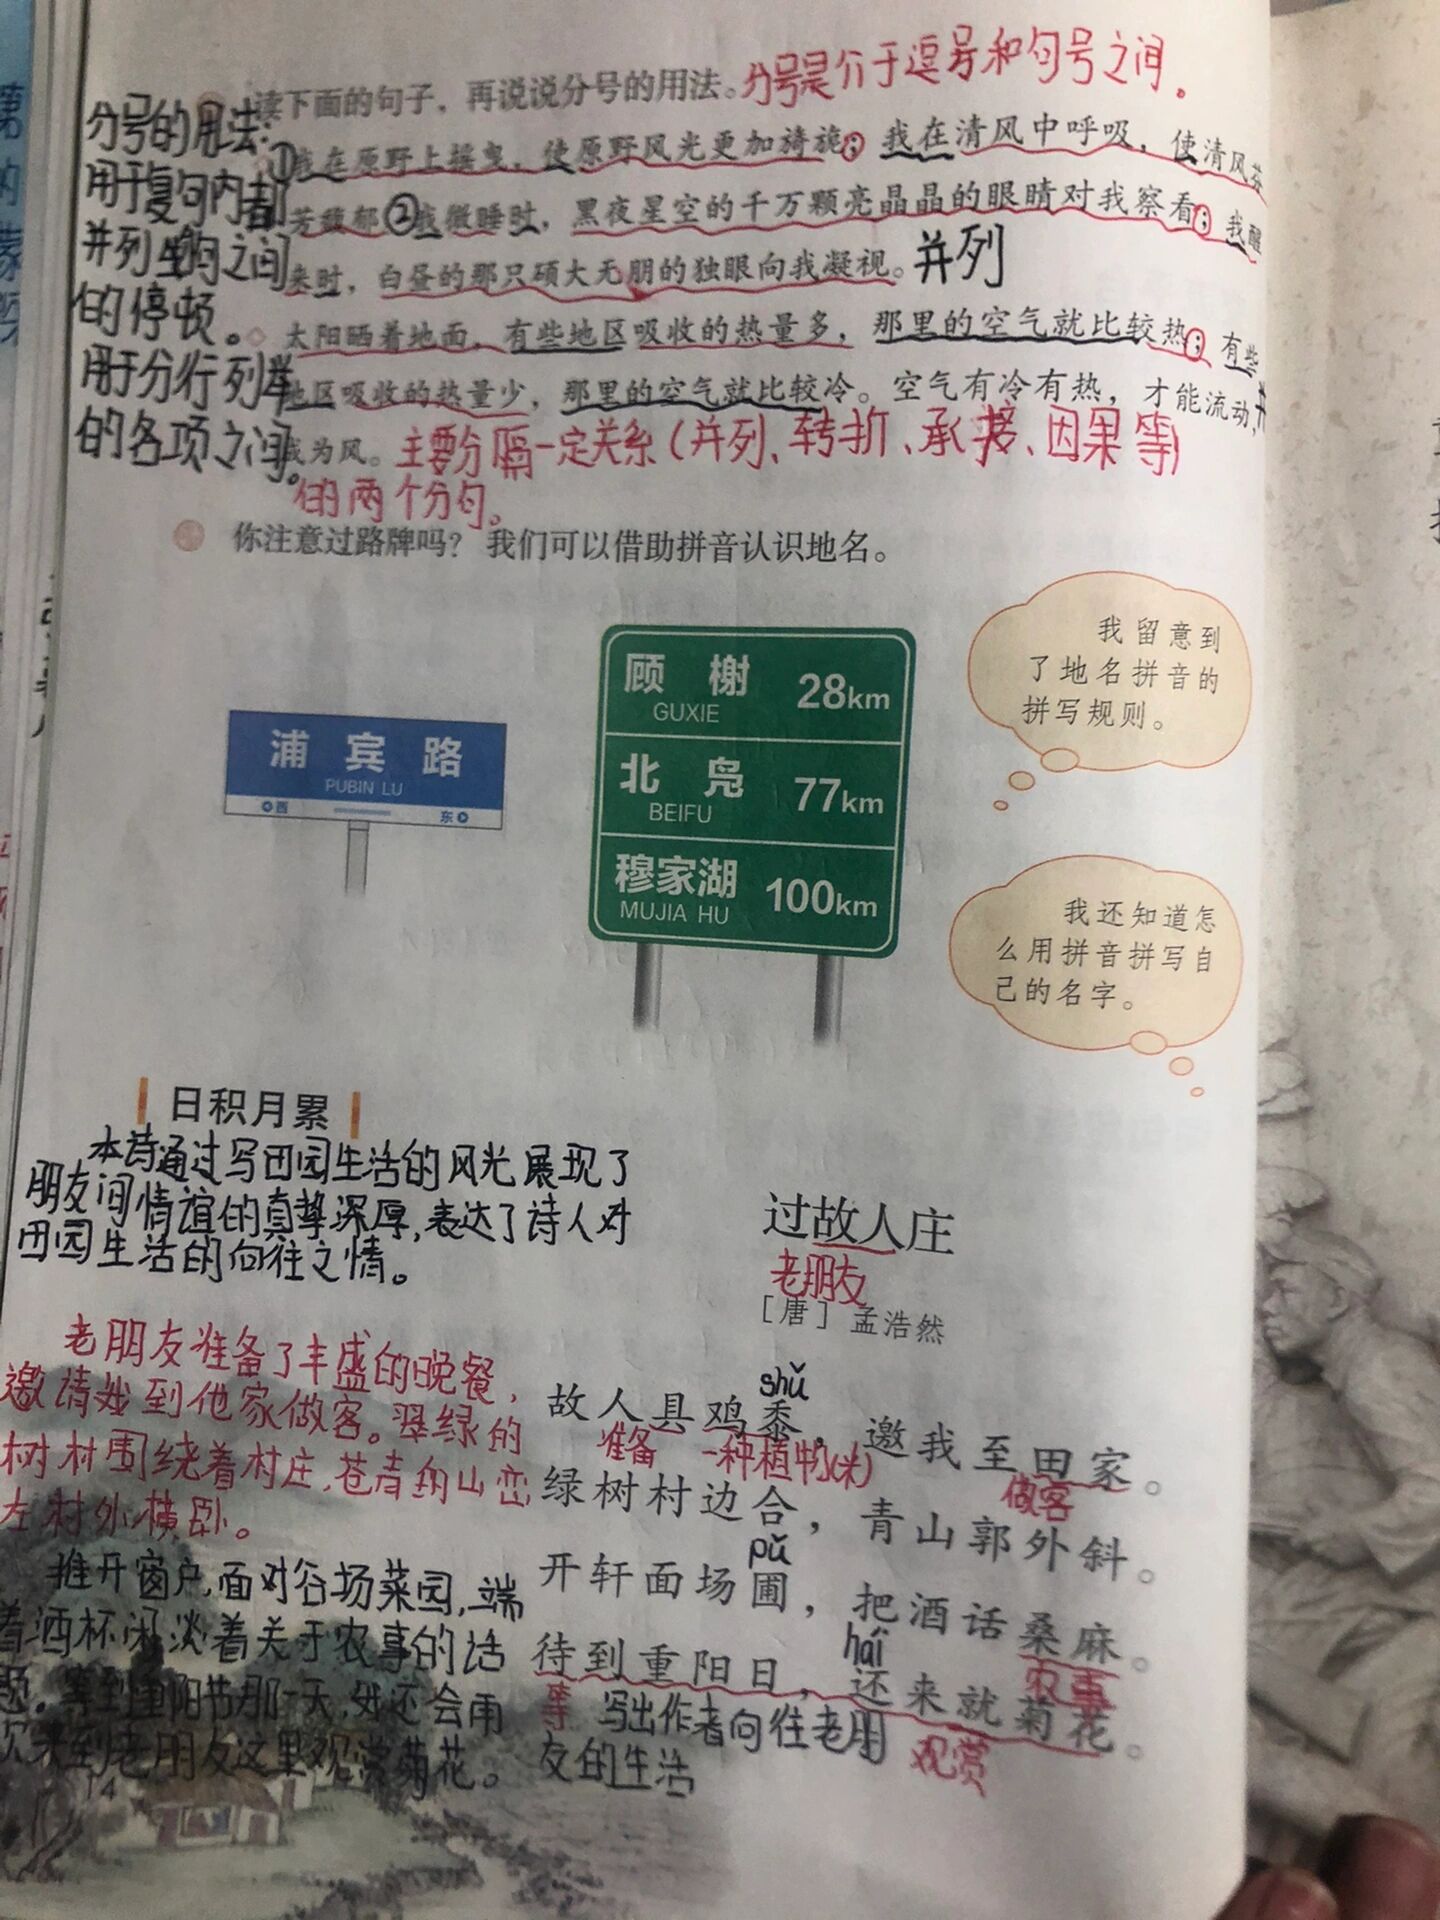 分号是介于逗号和句号之间。
读下面的句子，再说说分号的用法。
分号的用法:
用于复句内都
并列生的之间
的停顿。
用于分行列举
的各项之间。
①我在原野上摇曳，使原野风光更加旖旎；我在清风中呼吸，使清风芬
芳馥郁②我微睡时，黑夜星空的千万颗亮晶晶的眼睛对我察看；我醒
来时，白昼的那只硕大无朋的独眼向我凝视。并列
太阳晒着地面，有些地区吸收的热量多，那里的空气就比较热；有些
地区吸收的热量少，那里的空气就比较冷。空气有冷有热，才能流动，
成为风。主要分隔一定关系(并列、转折、承接、因果等)
的两个分句。
你注意过路牌吗？我们可以借助拼音认识地名。
浦宾路
PUBIN LU
西
东
顾榭 28km
GUXIE
北凫 77km
BEIFU
穆家湖 100km
MUJIA HU
我留意到
了地名拼音的
拼写规则。
我还知道怎
么用拼音拼写自
己的名字。
日积月累
本诗通过写田园生活的风光展现了
朋友间情谊的真挚深厚,表达了诗人对
田园生活的向往之情。
过故人庄
老朋友
［唐］孟浩然
老朋友准备了丰盛的晚餐，
邀请她到他家做客。翠绿的
树村围绕着村庄,苍青的山峦
在村外横卧。
推开窗户,面对谷场菜园,端
着酒杯闲谈着关于农事的话
题。等到重阳节那一天,她还会再
次来到老朋友这里观赏菊花。
shǔ
故人具鸡黍，邀我至田家。
准备 一种植物(米)
做客
绿树村边合，青山郭外斜。
pǔ
开轩面场圃，把酒话桑麻。
农事
hái
待到重阳日，还来就菊花。
等 写出作者向往老朋
友的生活
观赏
14